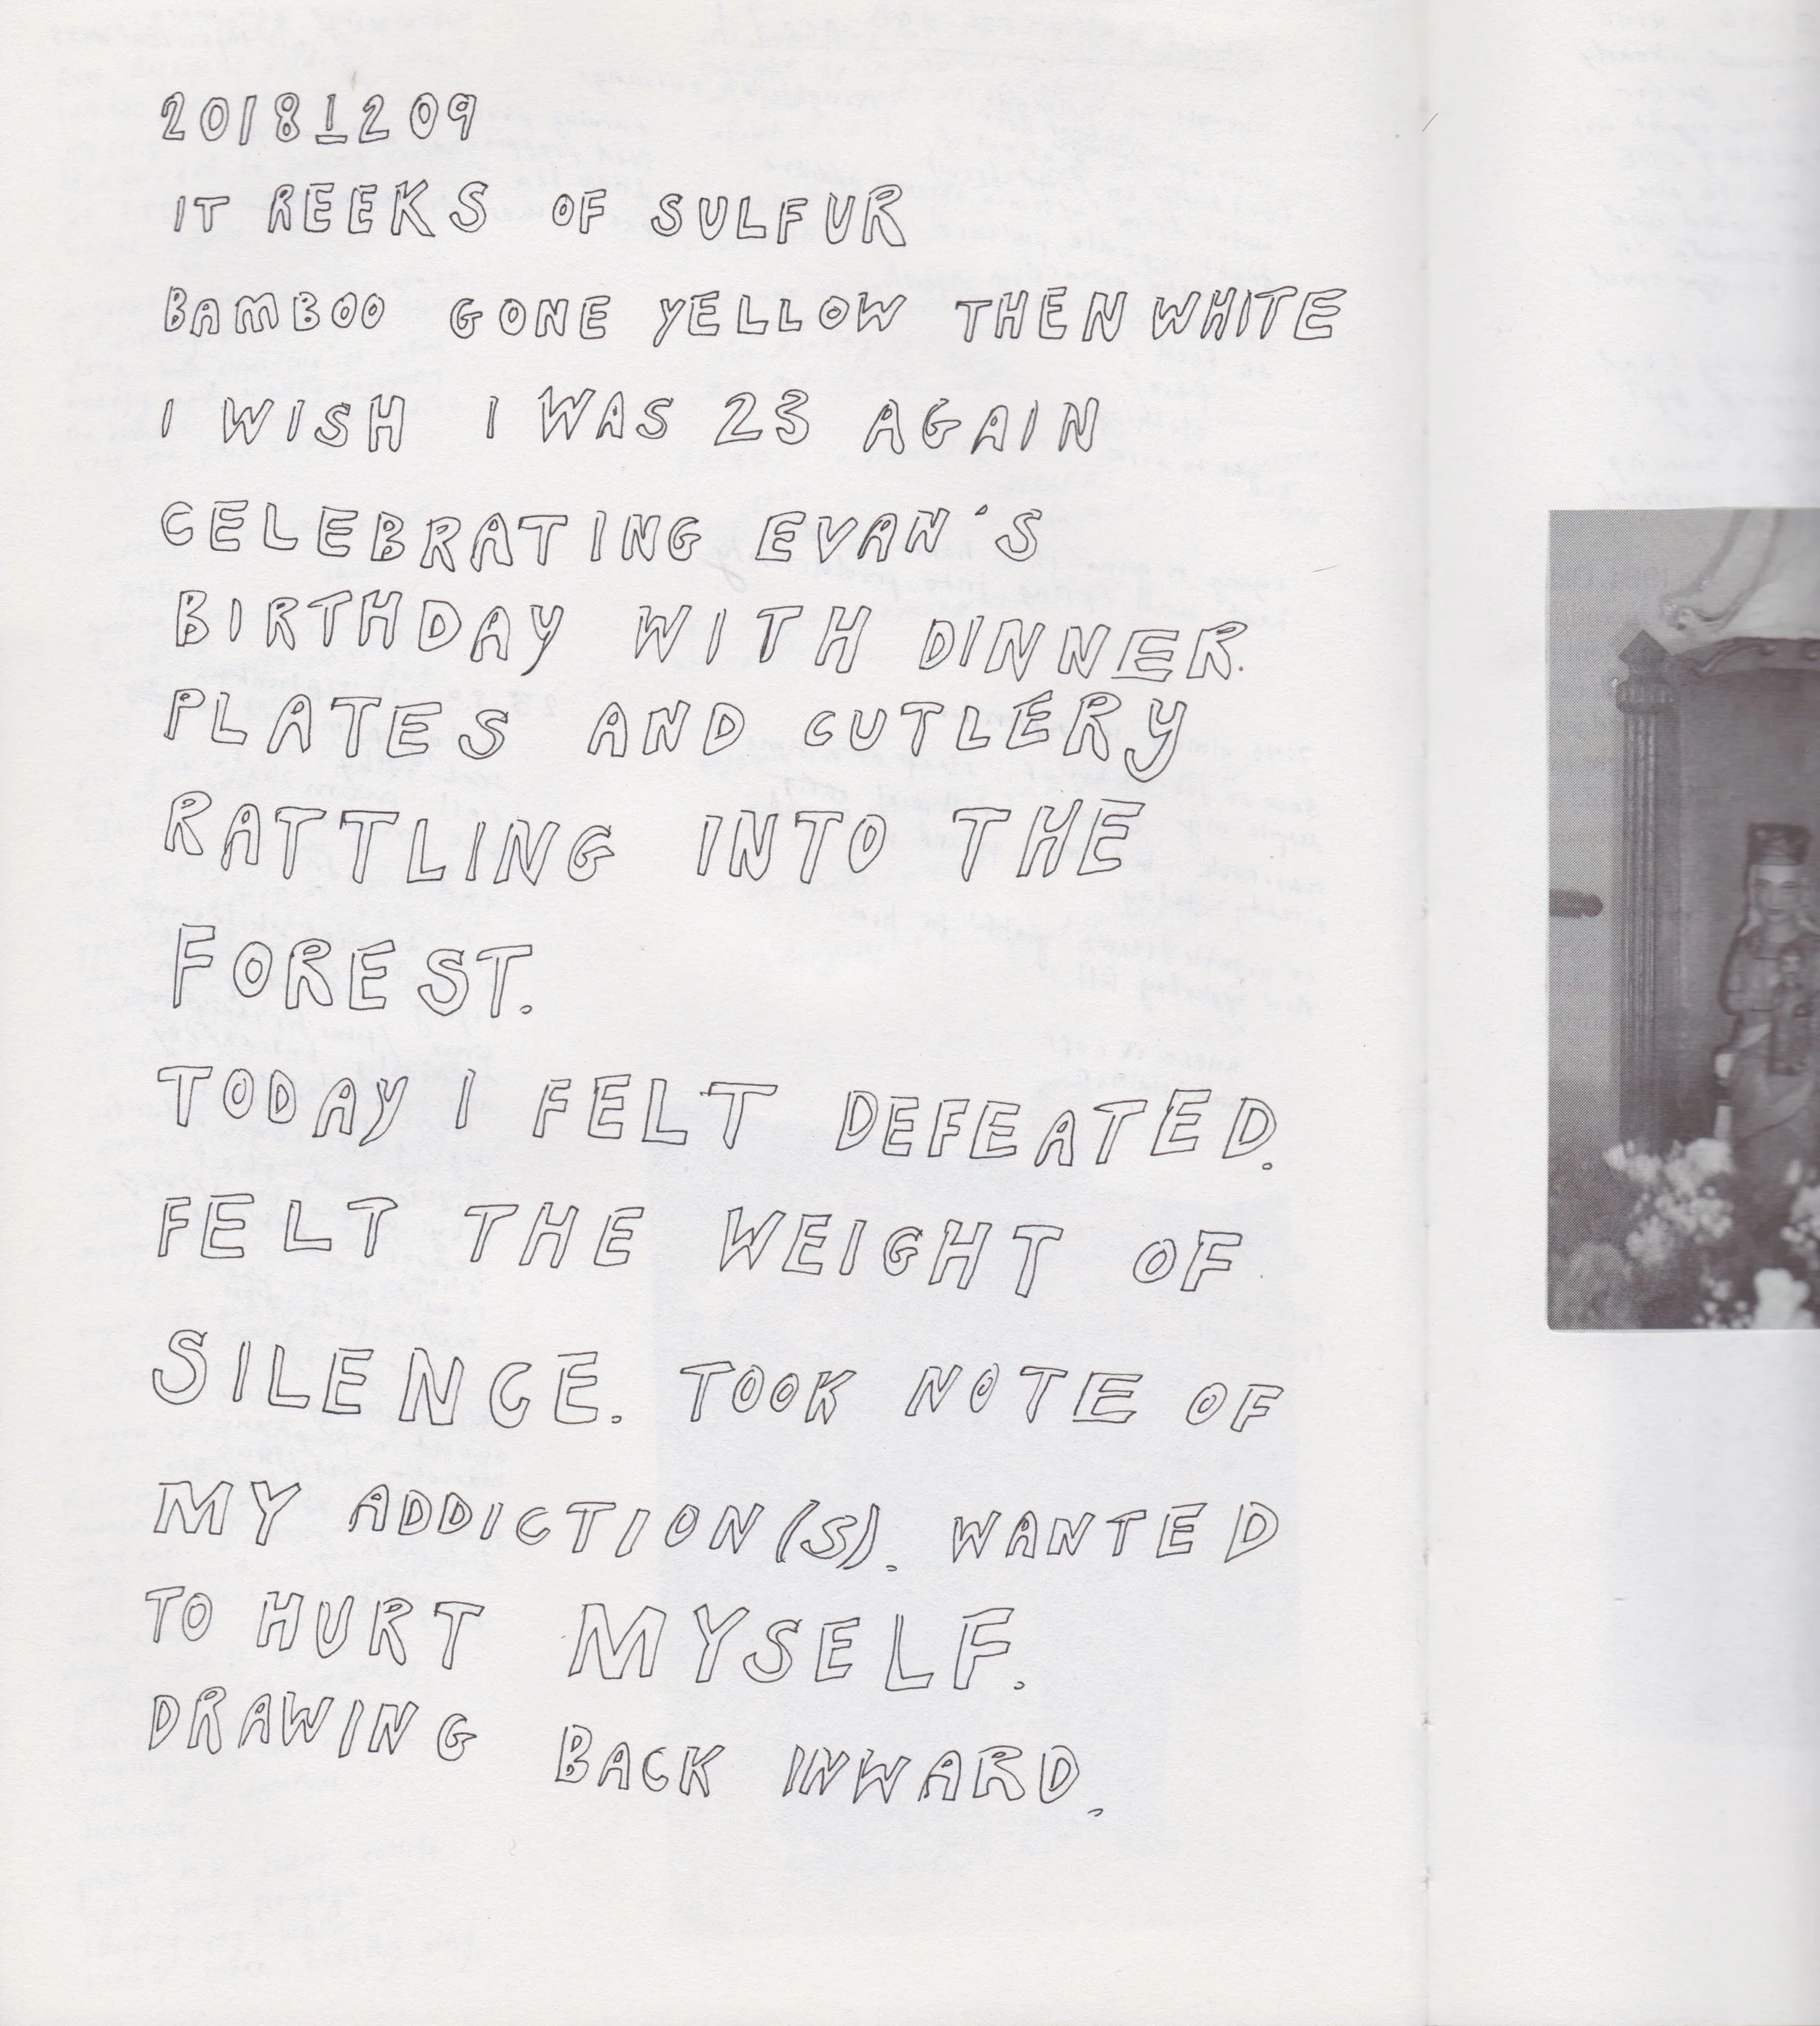 20181209
IT REEKS OF SULFUR
BAMBOO GONE YELLOW THEN WHITE
I WISH I WAS 23 AGAIN
CELEBRATING EVAN'S
BIRTHDAY WITH DINNER.
PLATES AND CUTLERY
RATTLING INTO THE
FOREST.
TODAY I FELT DEFEATED.
FELT THE WEIGHT OF
SILENCE. TOOK NOTE OF
MY ADDICTION(S). WANTED
TO HURT MYSELF.
DRAWING BACK INWARD.